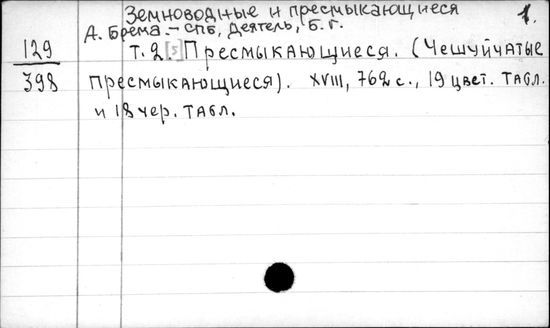 Земноводные и пресмыкающиеся 1.
А. Брема. – СПб, Деятель, б. г.
129 т. 2 [5] Пресмыкающиеся. (Чешуйчатые
398 пресмыкающиеся). XVIII, 762 с., 19 цвет. табл.
и 18 чер. табл.